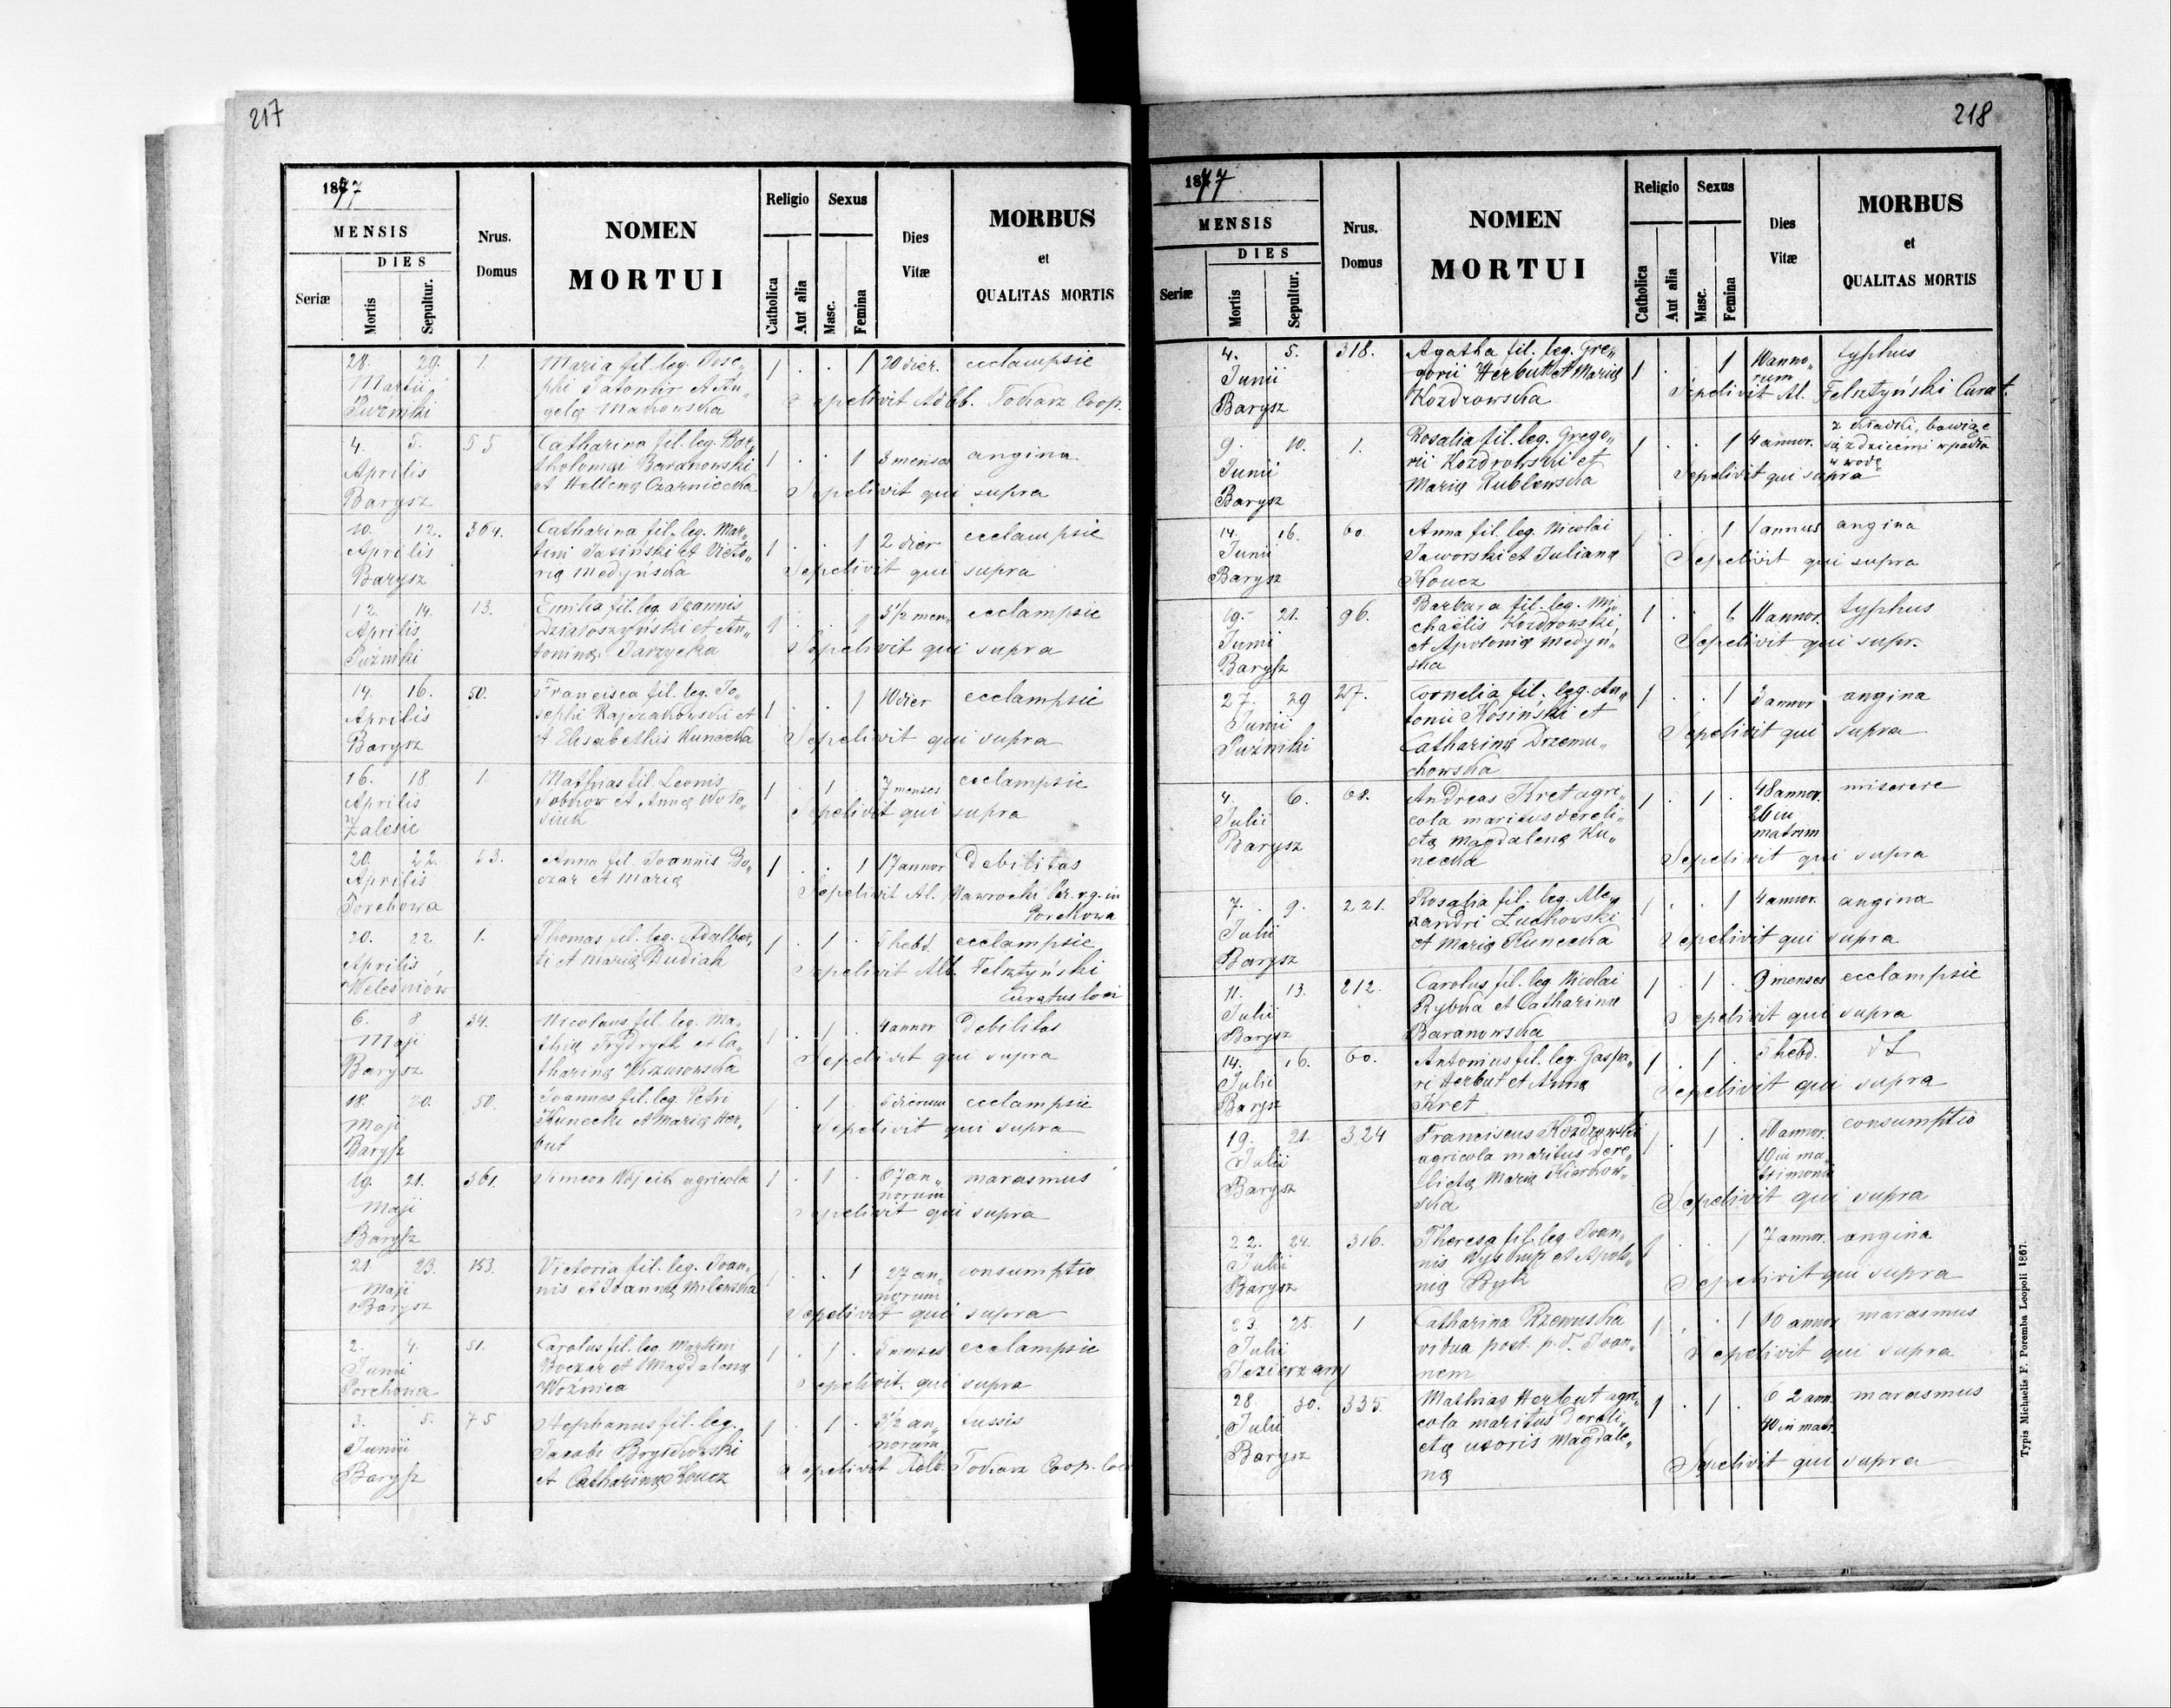 217
1877
MENSIS
DIES
Seriæ
Mortis
Sepultur.
Nrus.
Domus
NOMEN
MORTUI
Religio
Catholica
Aut alia
Sexus
Masc.
Femina
Dies
Vitæ
MORBUS
et
QUALITAS MORTIS
28. 29. 1. Maria fil. leg. Jose„ 1 . . 1 20 dier. ecclampsie
Martii
Puźniki
phi et An„
gelą Makowska
Sepelivit Adalb. Tokarz Coop.
4. 5. 55 Catharina fil. leg. Bar„ 1 . . 1 3 menses angina
Aprilis tholomęi Baranowski
Barysz et Helleną Czarniecka Sepelivit qui supra
10. 12. 364. Catharina fil. leg. Mar„ 1 . . 1 2 dier ecclampsie
Aprilis tini Jasiński et Victo„
Barysz rią Medyńska Sepelivit qui supra
12. 14. 13. Emilia fil. leg. Joannis 1 . . 1 3 1/2 men„ ecclampsie
Aprilis Działoszyński et An„
Puźniki toniną Zarzycka Sepelivit qui supra
14. 16. 50. Francisca fil. leg. Jo„ 1 . . 1 10 dier ecclampsie
Aprilis sephi Rajczakowski et
Barysz et Elisabethis Kunecka Sepelivit qui supra
16. 18. 1. Mathias fil. Leonis 1 . 1 7 menses ecclampsie
Aprilis Sobków et Anną Woło„
Zalesie siuk Sepelivit qui supra
20. 22. 53. Anna fil. Joannis Bo„ 1 . . 1 17 annor Debilitas
Aprilis czar et Marią
Porchowa Sepelivit Al. Nawrocki Par. r.g. in
Porchowa
20. 22. 1. Thomas fil. leg. Adalber„ 1 . 1 . 5 hebd ecclampsie
Aprilis ti et Marią Dudiak
Weleśniów Sepelivit Alb. Felsztyński
Curatus loci
6. 8 34. Nicolaus fil. leg. Ma„ 1 . 1 . 4 annor debilitas
Maji thią Frydryk et Ca„
Barysz thariną Sepelivit qui supra
18. 20. 50. Joannes fil. leg. Petri 1 . 1 . 6 dierum ecclampsie
Maji Kunecki et Marią Her„
Barysz but Sepelivit qui supra
19. 21. 361. Simeon Wójcik agricola 1 . 1 . 87 an„ marasmus
Maji norum
Barysz Sepelivit qui supra
21. 23. 153. Victoria fil. leg. Joan„ 1 . . 1 27 an„ consumptio
Maji nis et Joanną Milewska norum
Barysz Sepelivit qui supra
2. 4. 51. Carolus fil. leg. Martini 1 . 1 . 5 menses ecclampsie
Junii Boczar et Magdaleną
Porchowa Woźnica Sepelivit qui supra
3. 5. 75 Stephanus fil. leg. 1 . 1 . 3 1/2 an„ tussis
Junii Jacobi Bryszkowski norum
Barysz et Catharinę Koucz Sepelivit Adb. Tokarz Coop. loci
218
1877
MENSIS
DIES
Seriæ
Mortis
Sepultur.
Nrus.
Domus
NOMEN
MORTUI
Religio
Catholica
Aut alia
Sexus
Masc.
Femina
Dies
Vitæ
MORBUS
et
QUALITAS MORTIS
4. 5. 318. Agatha fil. leg. Gre„ 1 . . 1 10 anno„ typhus
Junii gorii Herbut et Marią rum
Barysz Kozdrowska Sepelivit Al. Felsztyński Curat.
9. 10. 1. Rosalia fil. leg. Grego„ 1 . . 1 4 annor. z kładki, bawiąc
Junii rii Kozdrowski et się z dziećmi wpadła
Barysz Marią Kublowska w wodę
Sepelivit qui supra
14. 16. 60 Anna fil. leg. Nicolai 1 . . 1 1 annus angina
Junii Jaworski et Julianą
Barysz Koucz Sepelivit qui supra
19. 21. 96. Barbara fil. leg. Mi„ 1 . 1 11 annor. typhus
Junii chaëlis Kozdrowski
Barysz et Apolonią Medyń„ Sepelivit qui supr.
ska
27. 29 27. Cornelia fil. leg. An„ 1 . . 1 3 annor angina
Junii tonii Kosiński et
Puźniki Catharinę Drzemu„ Sepelivit qui supra
chowska
4. 6. 68. Andreas Kret agri„ 1 . 1 . 48 annor. miserere
Julii cola maritus dereli„ 26 in
Barysz ctą Magdaleną Ku„ matrim
necka Sepelivit qui supra
7. 9. 221. Rosalia fil. leg. Ale„ 1 . . 1 4 annor. angina
Julii xandri Żuchowski
Barysz et Marią Kunecka Sepelivit qui supra
11. 13. 212. Carolus fil. leg. Nicolai 1 . 1 . 9 menses ecclampsie
Julii Rybka et Catharinae
Barysz Baranowska Sepelivit qui supra
14. 16. 60. Antonius fil. leg. Gaspa„ 1 . 1 . 5 hebd. dt
Julii ri Herbut et Anną
Barysz Kret Sepelivit qui supra
19. 21. 324 Franciscus Kozdrowski 1 . 1 . annor. consumptio
Julii agricola maritus dere„ 19 in ma„
Barysz lictą Marią Kierkow„ trimonii
ska Sepelivit qui supra
22. 24. 316. Theresa fil. leg. Joan„ 1 . . 1 7 annor. angina
Julii nis Wystmp et Apolo„
Barysz nią Byk Sepelivit qui supra
23. 25. 1 Catharina Rzewuska 1 . . 1 annor marasmus
Julii vidua post p.d. Joan„
Jezierzany nem Sepelivit qui supra
28. 30. 335. Mathias Herbut agri„ 1 . 1 . 62 ann. marasmus
Julii cola maritus dereli„ 40 in matr.
Barysz ctą uxoris Magdale„
ną Sepelivit qui supra
Typis Michaelis F. Poremba Leopoli 1867.